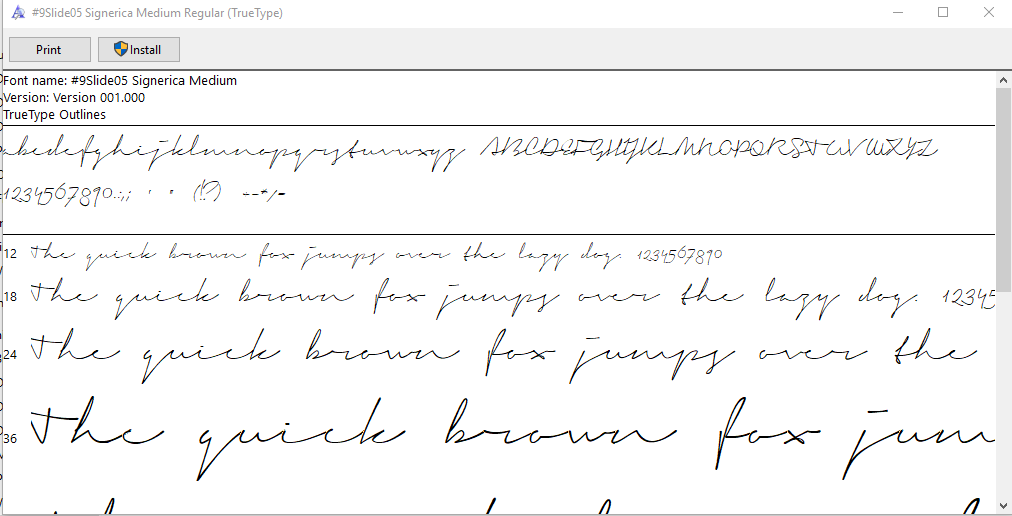 #9Slide05 Signerica Medium Regular (TrueType)
Print Install
Font name: #9Slide05 Signerica Medium
Version: Version 001.000
TrueType Outlines
abcdefghijklmnopqrstuvwxyz ABCDEFGHIJKLMNOPQRSTUVWXYZ
1234567890.:,; ' " (!?) +-*/=
12 The quick brown fox jumps over the lazy dog. 1234567890
18 The quick brown fox jumps over the lazy dog. 12345
24 The quick brown fox jumps over the
36 The quick brown fox jum